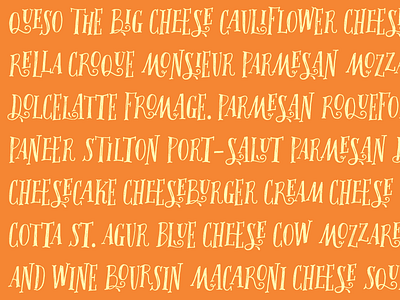 QUESO THE BIG CHEESE CAULIFLOWER CHEESE
RELLA CROQUE MONSIEUR PARMESAN MOZZA
DOLCELATTE FROMAGE. PARMESAN ROQUEFO
PANEER STILTON PORT-SALUT PARMESAN
CHEESECAKE CHEESEBURGER CREAM CHEESE
COTTA ST. AGUR BLUE CHEESE COW MOZZARE
AND WINE BOURSIN MACARONI CHEESE SQU